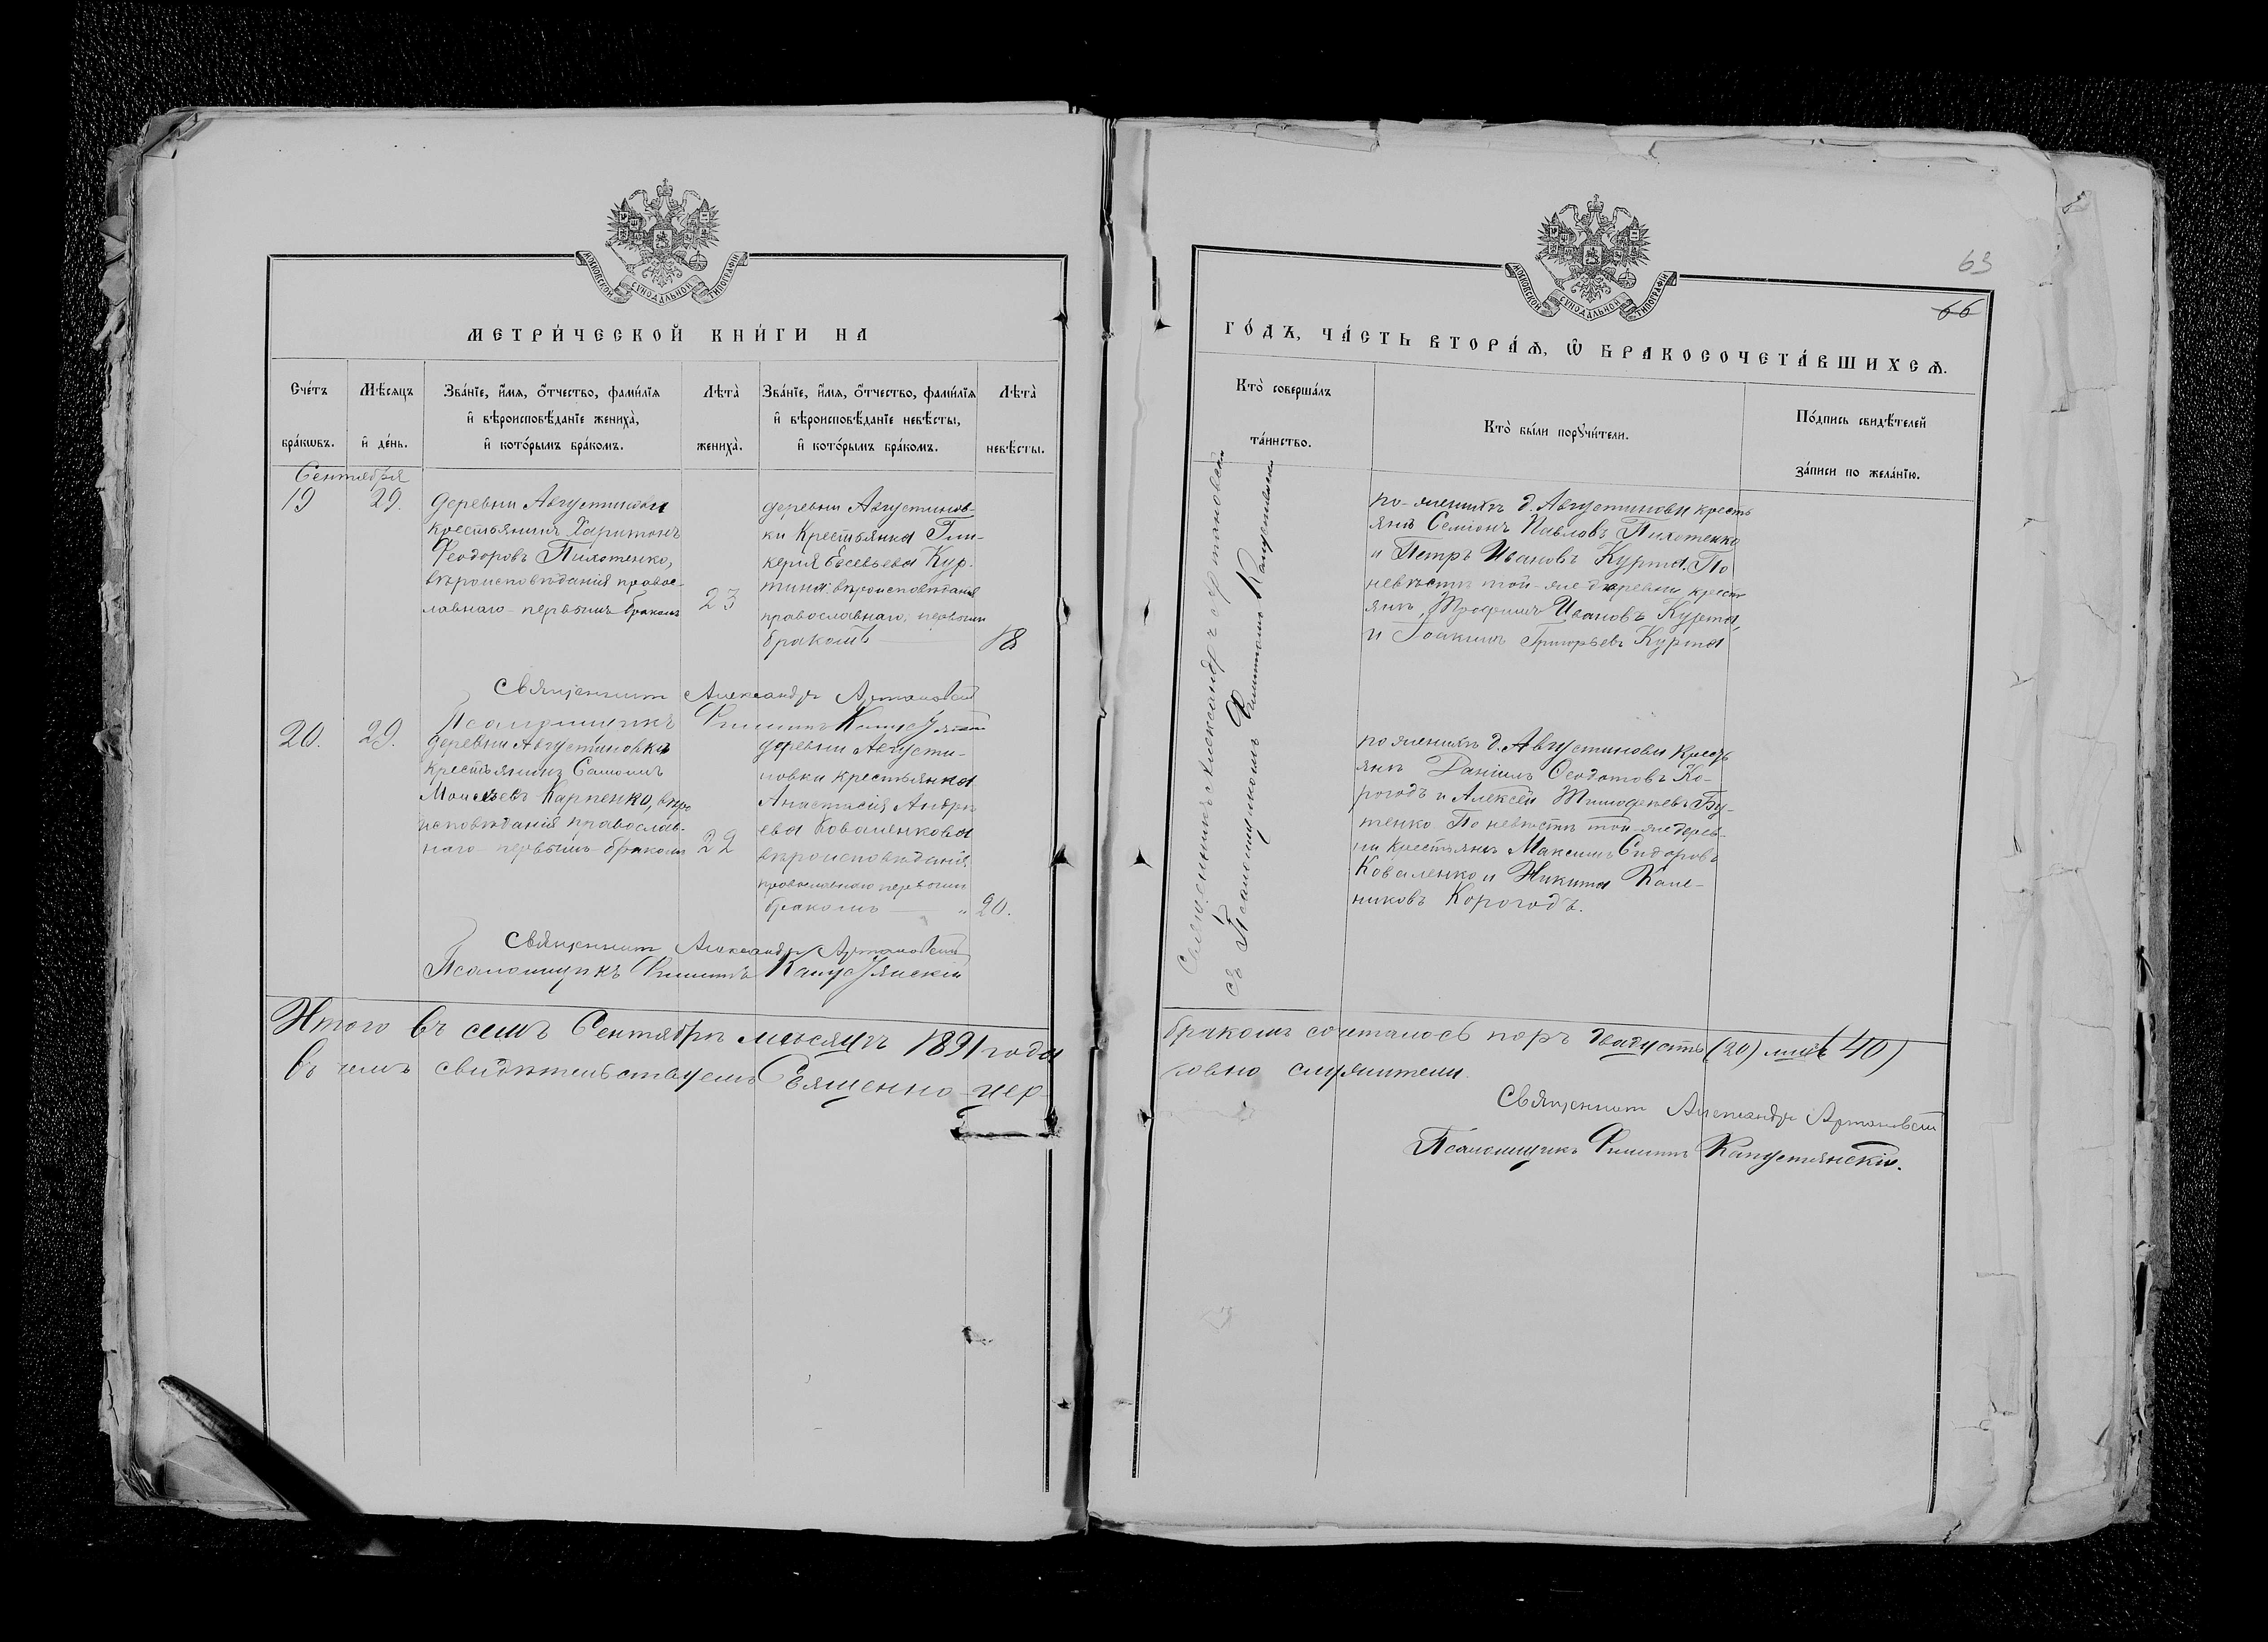 МОСКОВСКОЙ СѴНОДАЛЬНОЙ ТИПОГРАФІИ
МЕТРИ́ЧЕСКОЙ КНИ́ГИ НА
Сче́тъ бра́кѡвъ.
Мѣ́сяцъ и҆ де́нь.
Зва́нїе, и҆́мѧ, ѻ҆́тчество, фами́лїѧ
и҆ вѣроисповѣ́данїе жениха̀,
и҆ кото́рымъ бра́комъ.
Лѣта̀ жениха̀.
Зва́нїе, и҆́мѧ, ѻ҆́тчество, фами́лїѧ
и҆ вѣроисповѣ́данїе невѣ́сты,
и҆ кото́рымъ бра́комъ.
Лѣта̀ невѣ́сты.
Сентября
19
29.
деревни Августиновки
крестьянинъ Харитонъ
Ѳеодоровъ Пихотенко,
вѣроисповѣданія правос-
лавнаго первымъ бракомъ
23
деревни Августинов-
ки Крестьянка Гли-
керія Евсевьева Кур-
тина вѣроисповѣданія
православнаго, первымъ
бракомъ
18
Священникъ Александръ Артановскій
Псаломщикъ Филиппъ Капустянскій
20.
29.
деревни Августиновки
крестьянинъ Самоилъ
Моисеевъ Карпенко, вѣро
исповѣданія православ-
наго первымъ бракомъ
22
деревни Августи-
новки крестьянка
Анастасія Андрѣ
ева Коваленкова
вѣроисповѣданія
православнаго первымъ
бракомъ
20.
Священникъ Александръ Артановскій
Псаломщикъ Филиппъ Капустянскій
Итого въ семъ Сентябрѣ мѣсяцѣ 1891 года
въ чемъ свидѣтельствуемъ Священно-цер-
63
66
МОСКОВСКОЙ СѴНОДАЛЬНОЙ ТИПОГРАФІИ
ГО́ДЪ, ЧА́СТЬ ВТОРА́Ѧ, Ѡ҆ БРАКОСОЧЕТА́ВШИХСѦ.
Кто̀ соверша́лъ
та́инство.
Кто̀ бы́ли порꙋчи́тели.
По́дпись свидѣ́телей
за́писи по жела́нїю.
Священникъ Александръ Артановскій
съ Псаломщикомъ Филиппомъ Капустянскимъ
по женихѣ д. Августиновки кресть
янѣ Семіонъ Павловъ Пихотенко
и Петръ Ивановъ Курта. По
невѣстѣ той-же деревни крест
янѣ, Трофимъ Ивановъ Курта,
и Іоакимъ Григорьевъ Курта
по женихѣ д. Августиновки Кресть
янѣ Даніилъ Ѳеодотовъ Ко-
рогодъ и Алексѣй Тимофеевъ Бу-
тенко По невѣстѣ той-же дерев-
ни Крестьянѣ Максимъ Сидоровъ
Коваленко и Никита
никовъ Корогодъ.
бракомъ сочеталось паръ двадцать (20) лицъ (40)
ковно служители.
Священникъ Александръ Артановскій
Псаломщикъ Филиппъ Капустянскій.